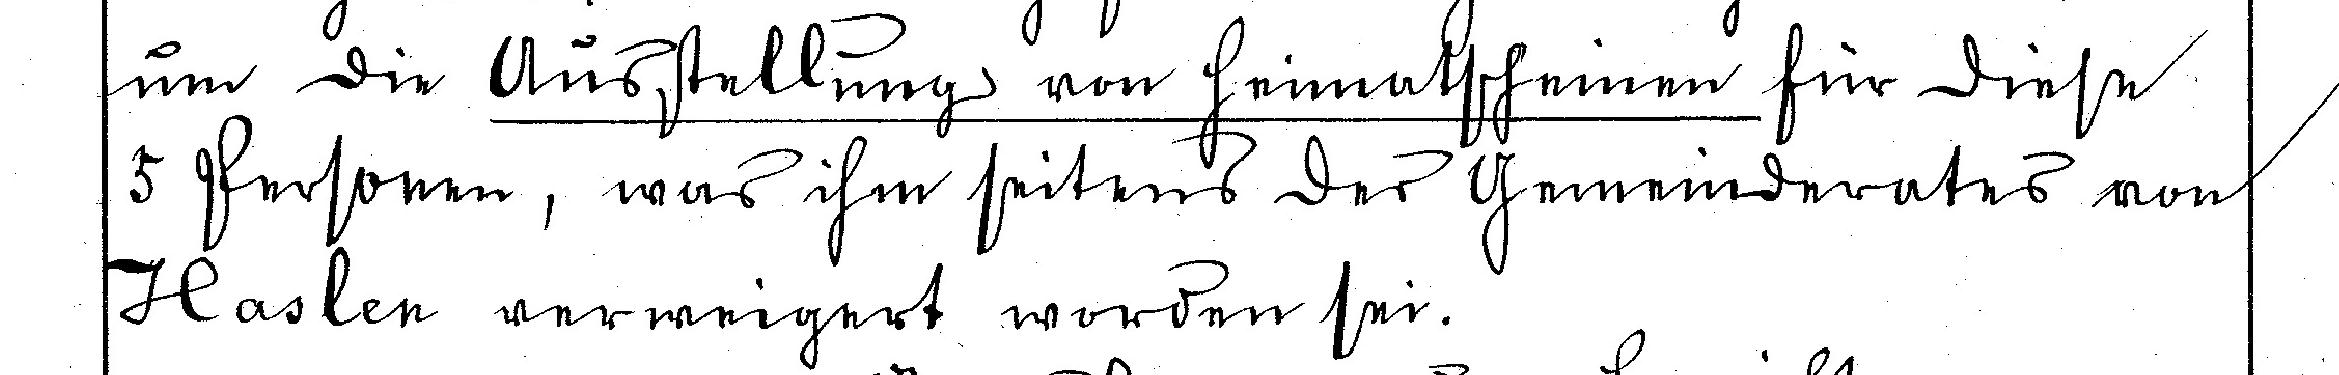 um die Ausstellung von Heimatscheinen für diese
5 Personen, was ihm seitens des Gemeinderates von
Haslen verweigert worden sei.